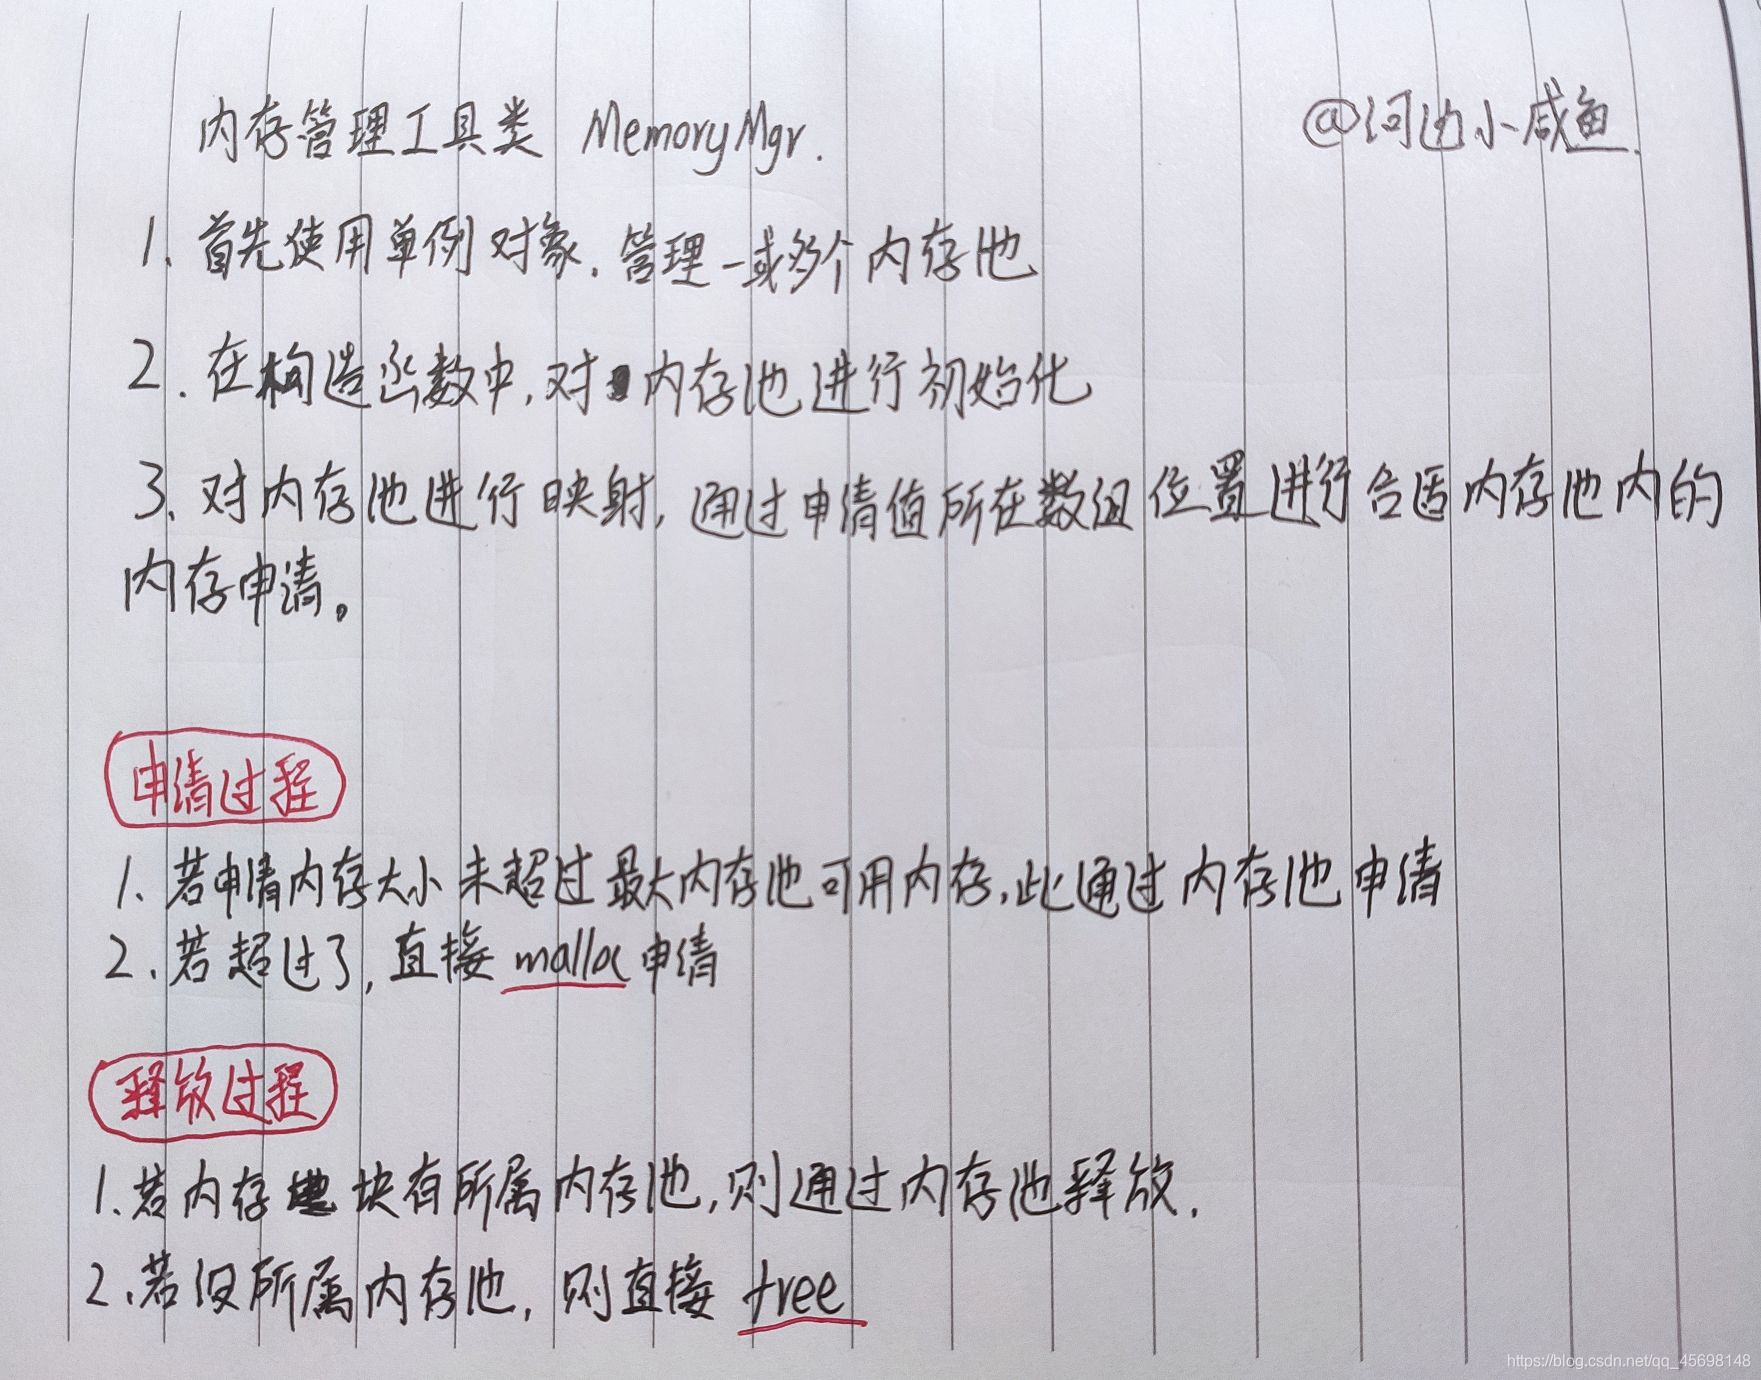 内存管理工具类 MemoryMgr.
@河边小咸鱼.
1. 首先使用单例对象. 管理一或多个内存池
2. 在构造函数中, 对内存池进行初始化
3. 对内存池进行映射, 通过申请值所在数组位置进行合适内存池内的
内存申请。
申请过程
1. 若申请内存大小未超过最大内存池可用内存, 此通过内存池申请
2. 若超过了, 直接malloc申请
释放过程
1. 若内存块有所属内存池, 则通过内存池释放.
2. 若没所属内存池, 则直接 free
https://blog.csdn.net/qq_45698148